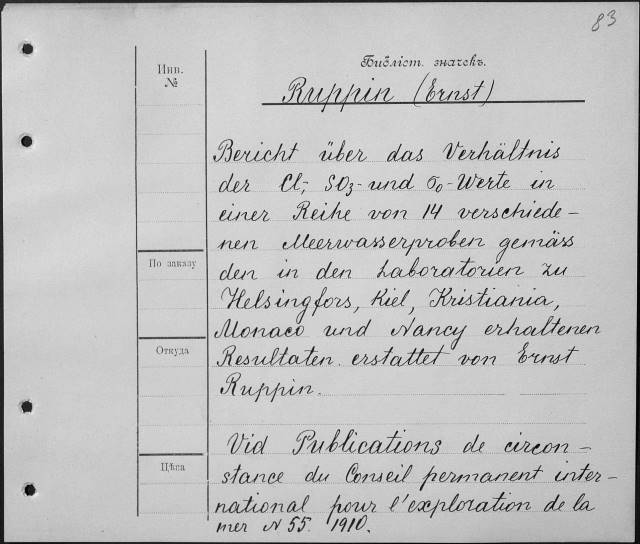 83
Библіот. значекъ.
Инв.
№
Ruppin (Ernst)
Bericht über das Verhältnis
der Cl-, SO3- und σ0-Werte in
einer Reihe von 14 verschiede-
nen Meerwasserproben gemäss
den in den Laboratorien zu
По заказу
Helsingfors, Kiel, Kristiania,
Monaco und Nancy erhaltenen
Откуда
Resultaten erstattet von Ernst
Ruppin.
Vid Publications de circon-
Цѣна
stance du Conseil permanent inter-
national pour l'exploration de la
mer N 55. 1910.